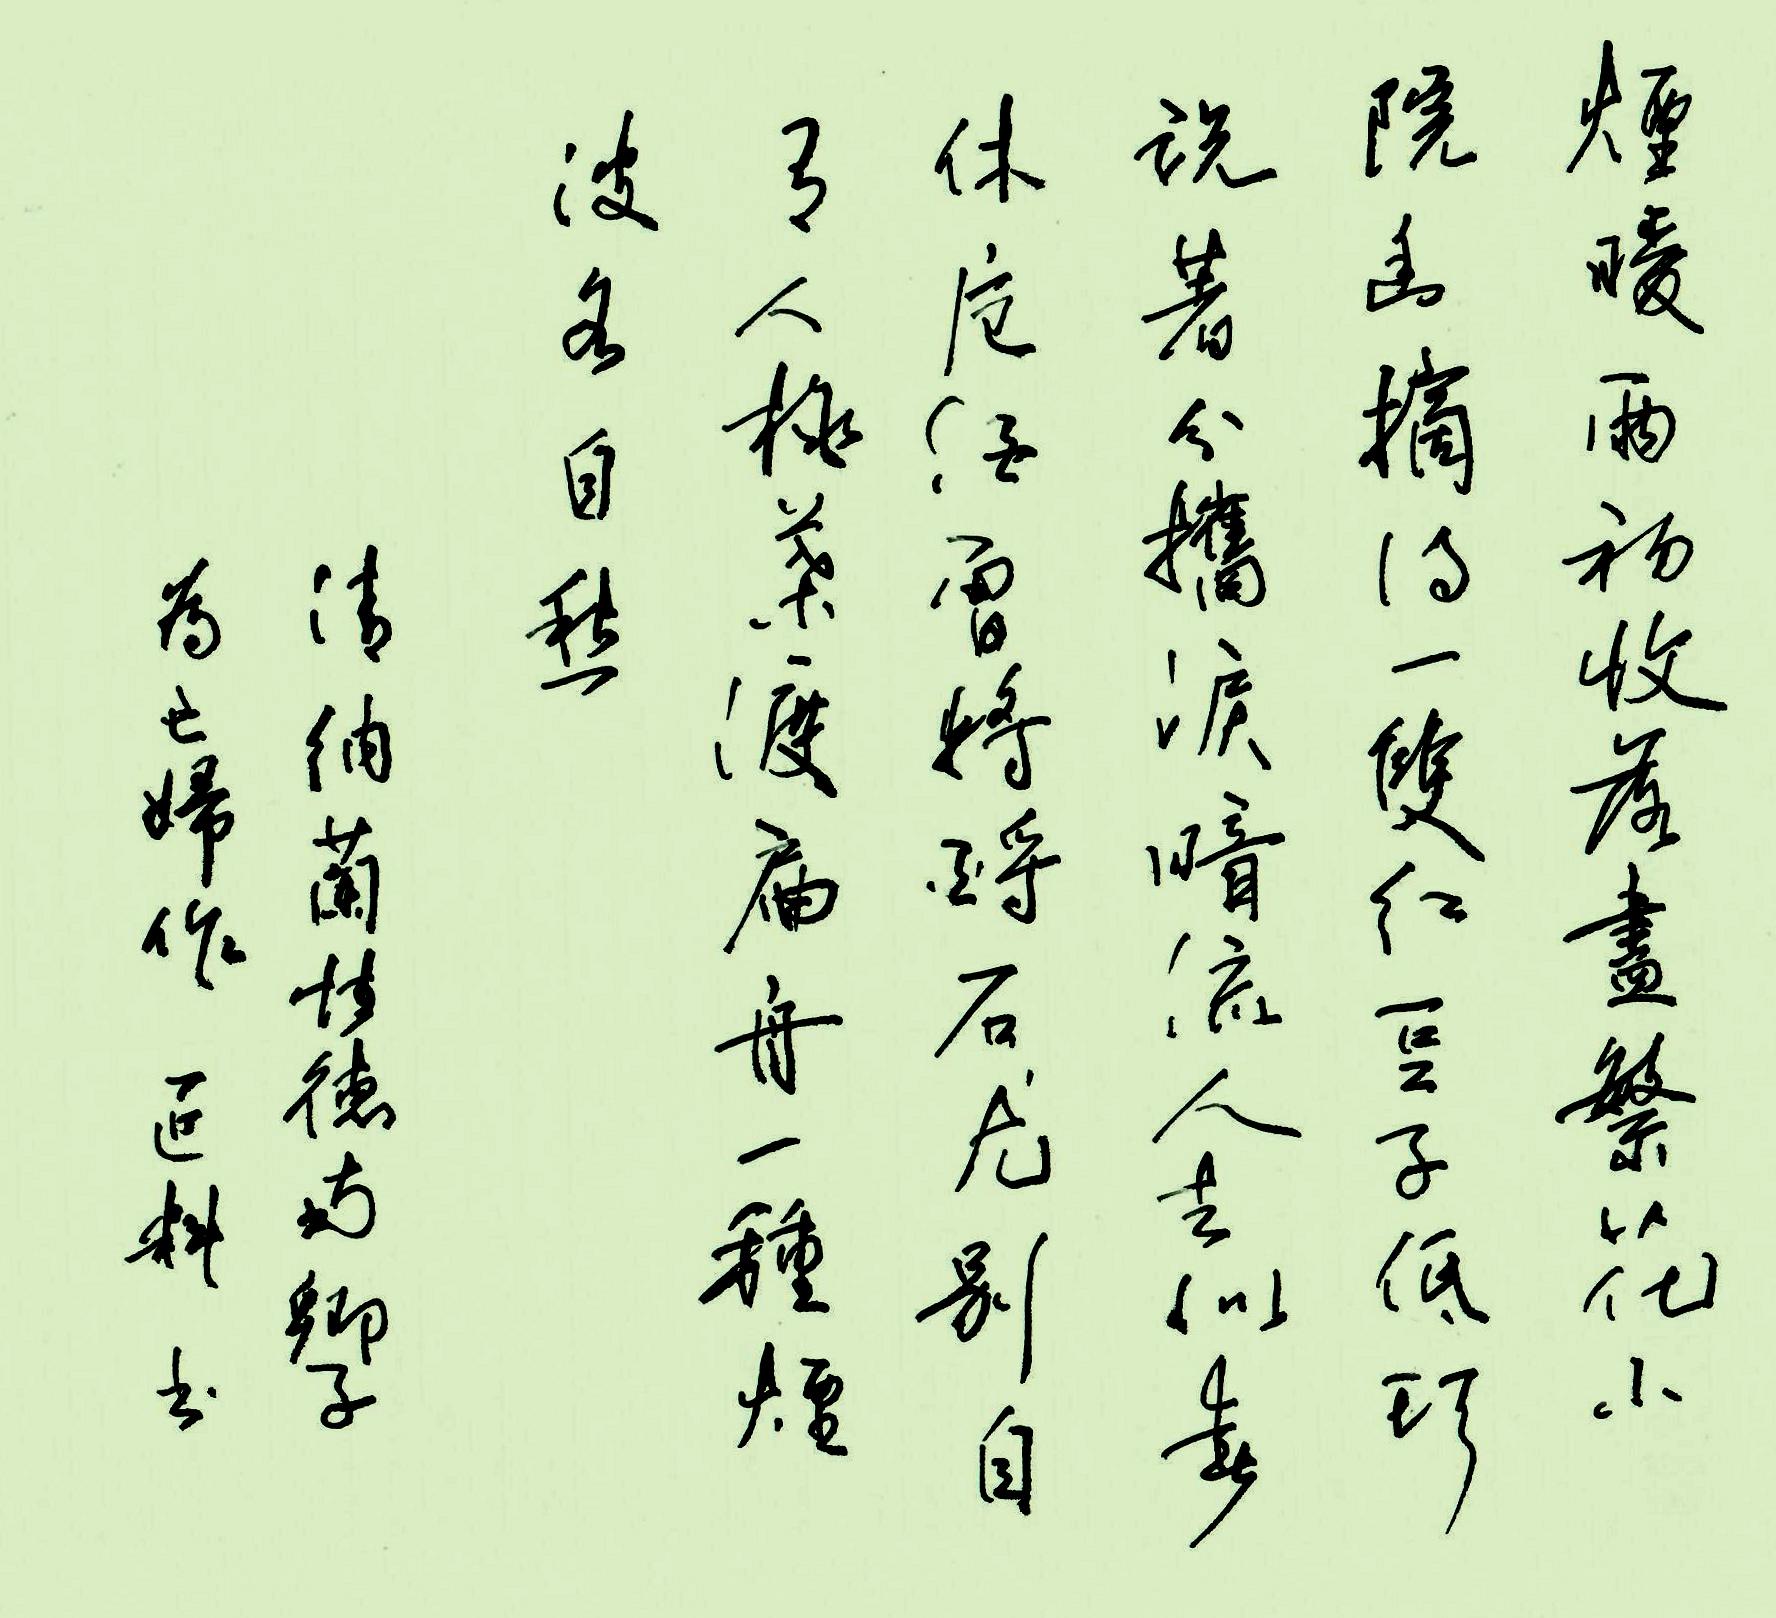 煙暖雨初收落盡繁花小
院幽摘得一雙紅豆子低頭
說著分攜淚暗流人去似春
休卮酒曾將酹石尤別自
有人桃葉渡扁舟一種煙
波各自愁
清納蘭性德南鄉子
為亡婦作 料书